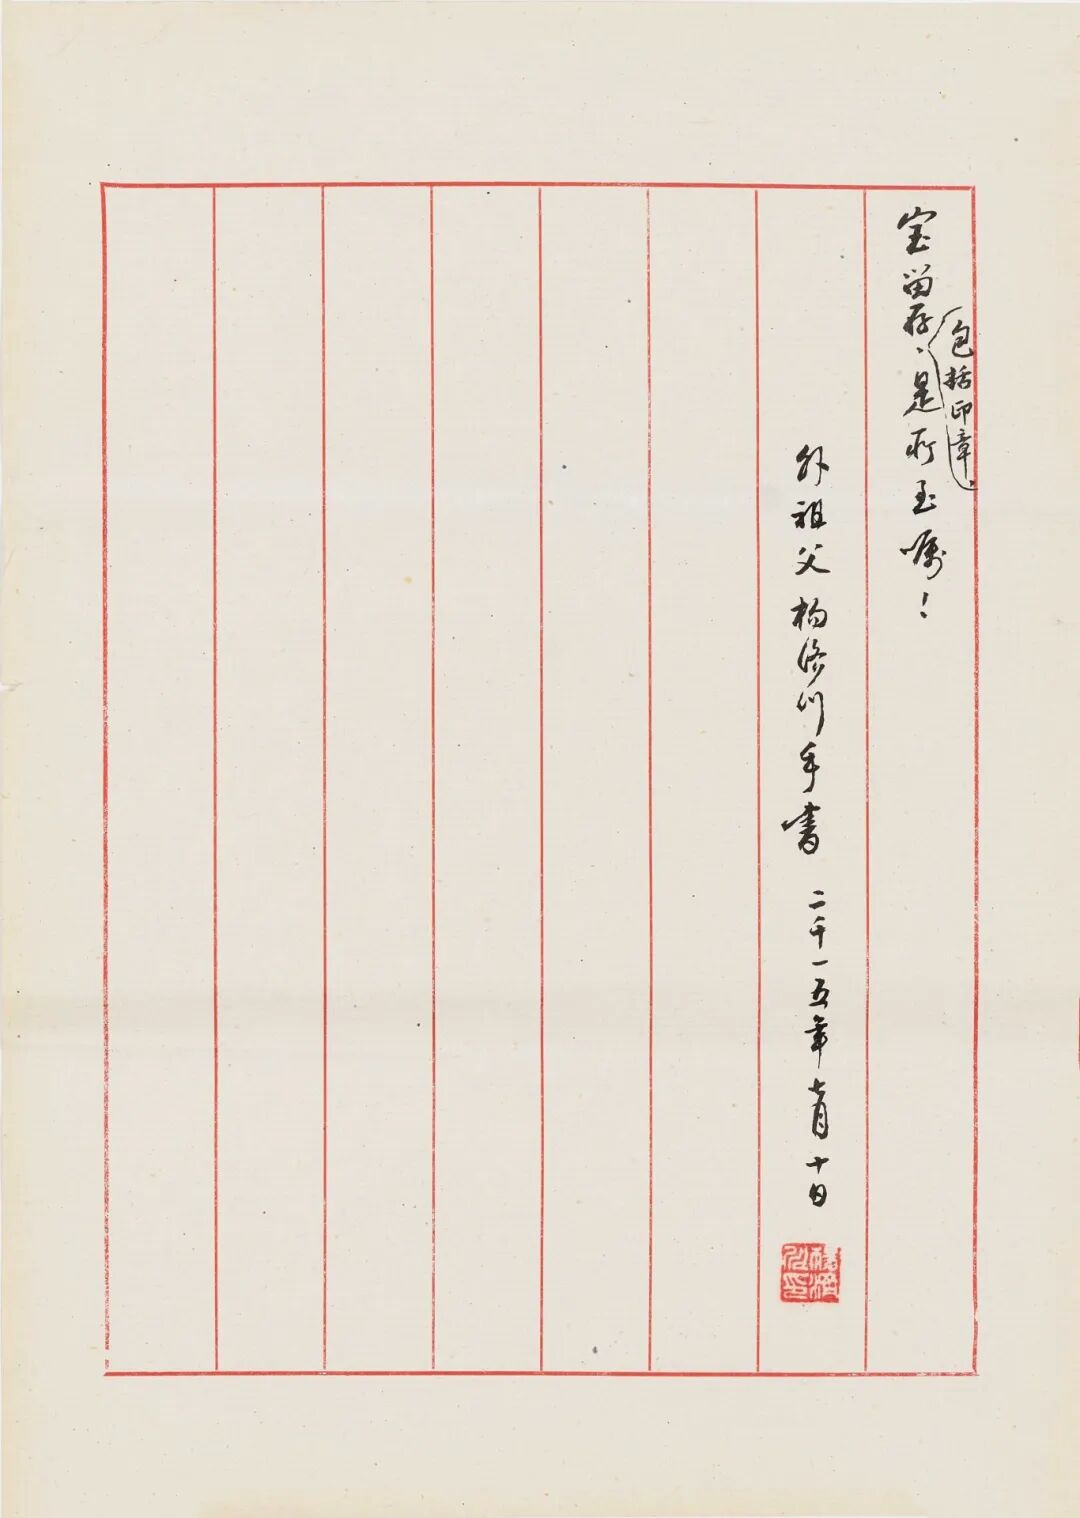 宝留存、是所至嘱！
（包括印章）
外祖父杨济川手书 二千一五年七月十日